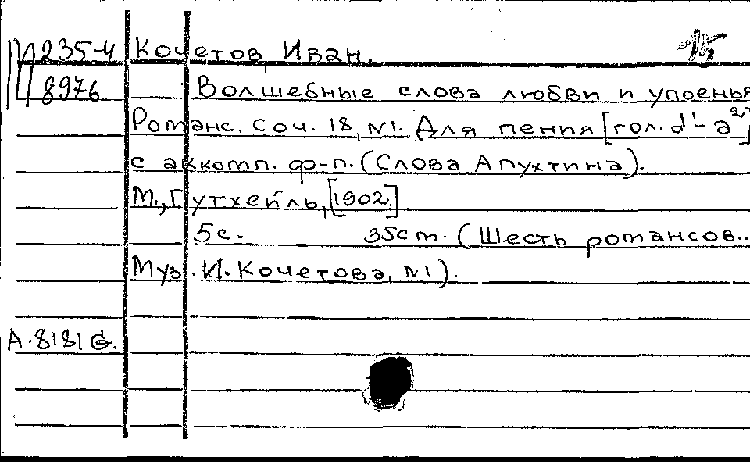 П 235-4 Кочетов Иван. 15
8976 Волшебные слова любви и упоенья
Романс. Соч. 18, №1. Для пения [гол. d¹-a²]
с аккомп. ф-п. (Слова Апухтина).
М., Гутхейль, [1902]
5с. 35см. (Шесть романсов..
Муз. И. Кочетова, №1).
А.8181 G.